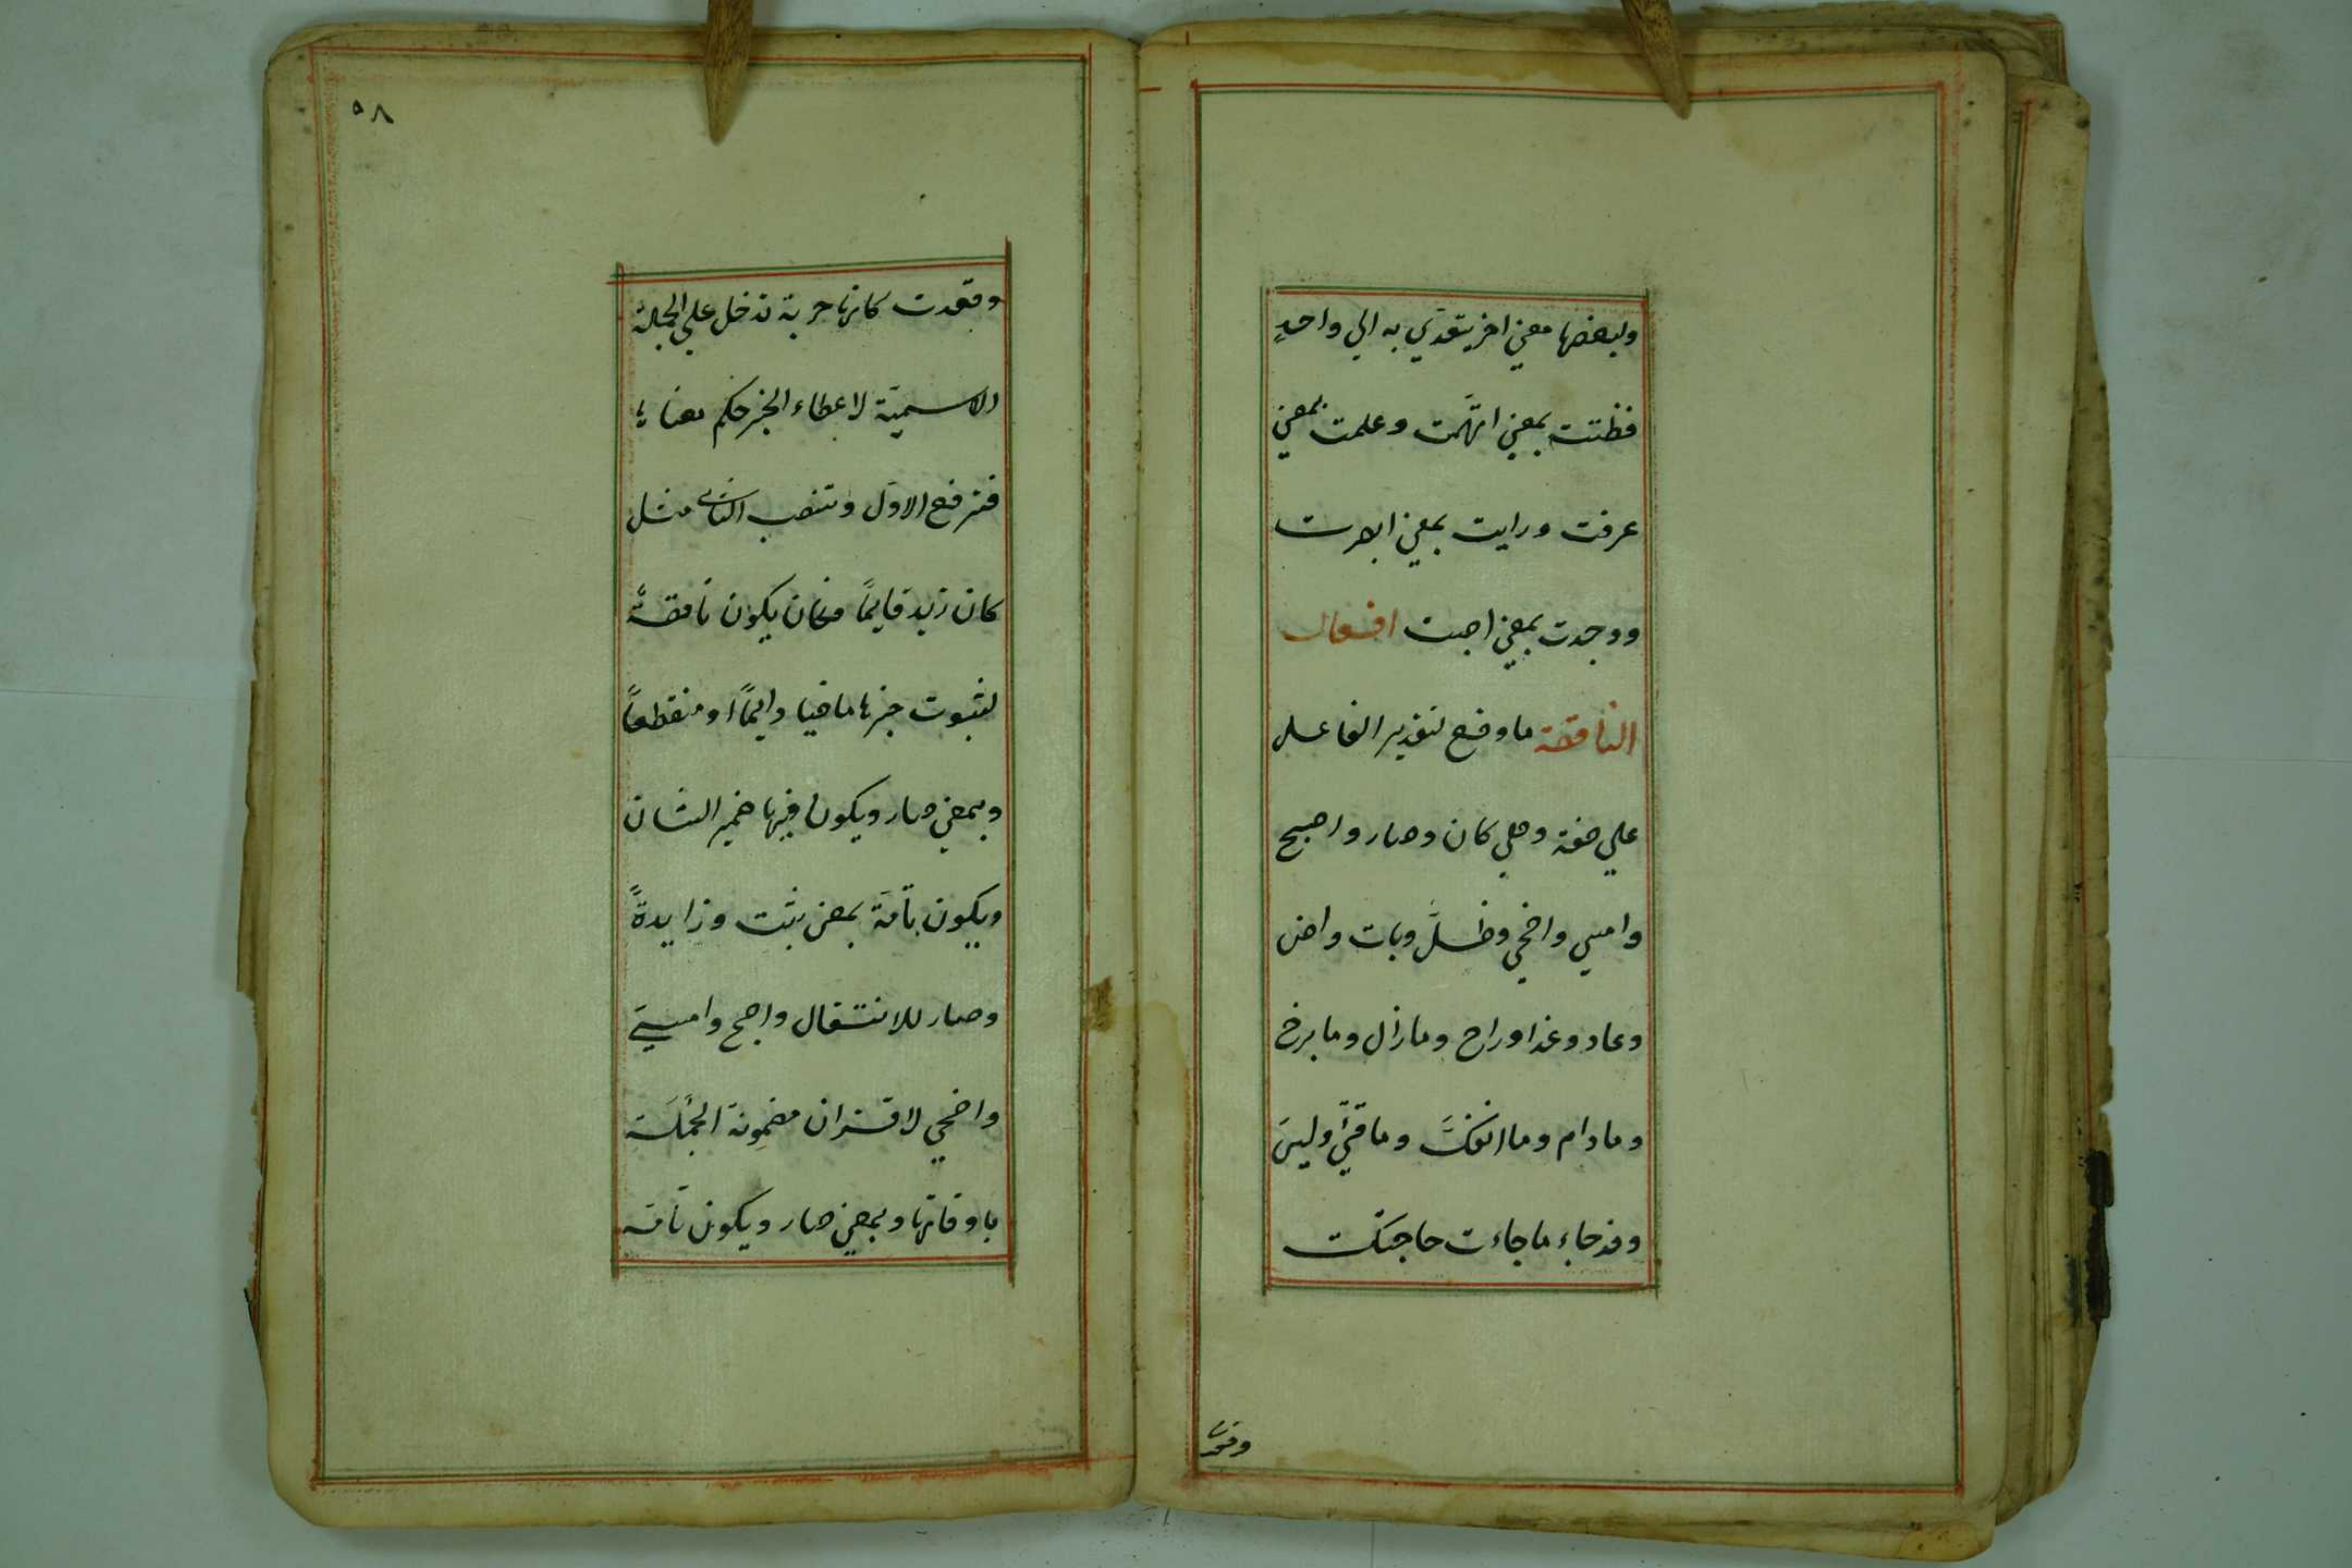 ولبعضها معني اخر يتعدي به الي واحدٍ
فظننت بمعني اتّهمت وعلمت بمعني
عرفت ورايت بمعني ابصرت
ووجدت بمعني اصبت افعال
الناقصة ما وضع لتقرير الفاعل
علي صفة وهي كان وصار واصبح
وامسي واضحي وظلَّ وبات واض
وعاد وغدا وراح وما زال وما برح
وما دام وما انفكَّ وما فتئَ وليسَ
وقد جاء ما جاءت حاجتك
وقعدت
٥٨
وقعدت كانها حربة تدخل علي الجملة
الاسمية لاعطاء الخبر حكم معناها
فترفع الاوّل وتنصب الثاني مثل
كان زيد قايمًا فكان يكون ناقصةً
لثبوت خبرها ماضيا دايمًا او منقطعاً
وبمعني صار ويكون فيها ضمير الشان
ويكون تامّة بمعني ثبت وزايدةً
وصار للانتقال واصبح وامسي
واضحي لاقتران مضمونة الجملة
باوقاتها وبمعني صار ويكون تامّة